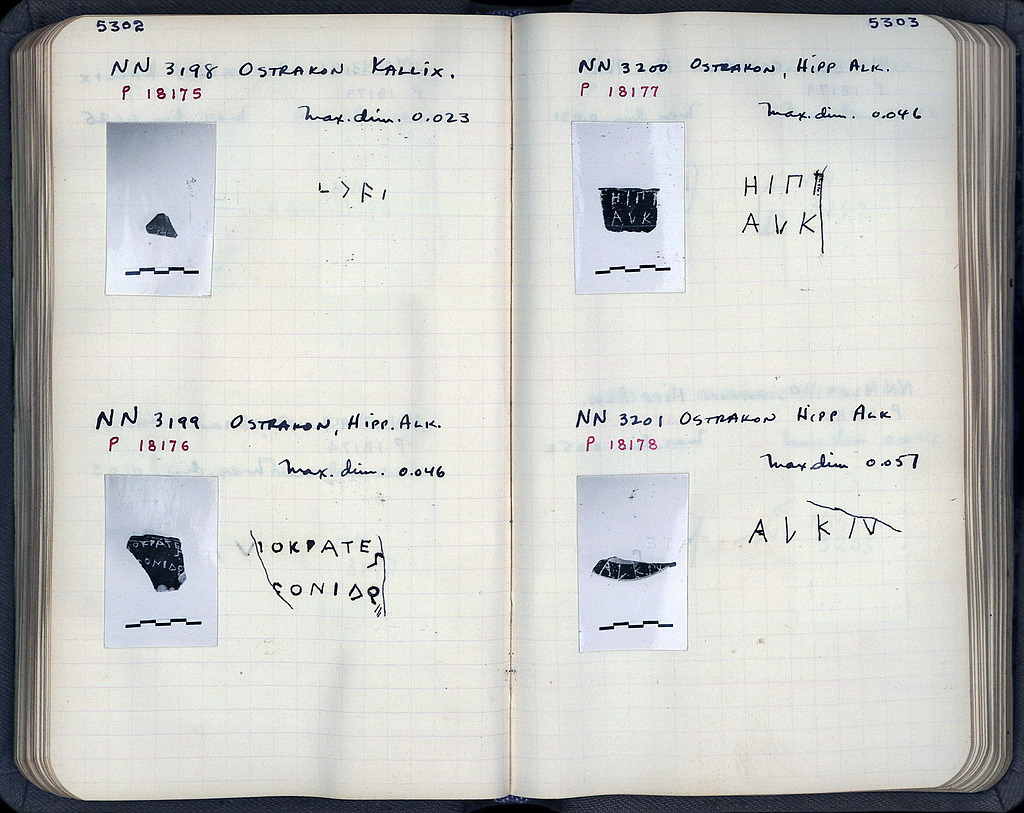 5302
NN 3198 OSTRAKON KALLIX.
P 18175
Max. dim. 0.023
NN 3199 OSTRAKON, HIPP. ALK.
P 18176
Max. dim. 0.046
ΙΟΚΡΑΤΕ
ΟΝΙΔΟ
5303
NN 3200 OSTRAKON, HIPP ALK.
P 18177
Max. dim. 0.046
ΗΙΠ
ΑLΚ
NN 3201 OSTRAKON HIPP ALK
P 18178
Max dim 0.057
ΑLΚΙV